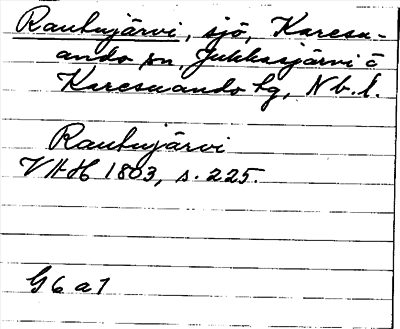 Rautujärvi, sjö, Karesu-
ando sn, Jukkasjärvi o
Karesuando lg, Nb. l.
Rautujärvi
VAH 1803, s. 225.
G6a1